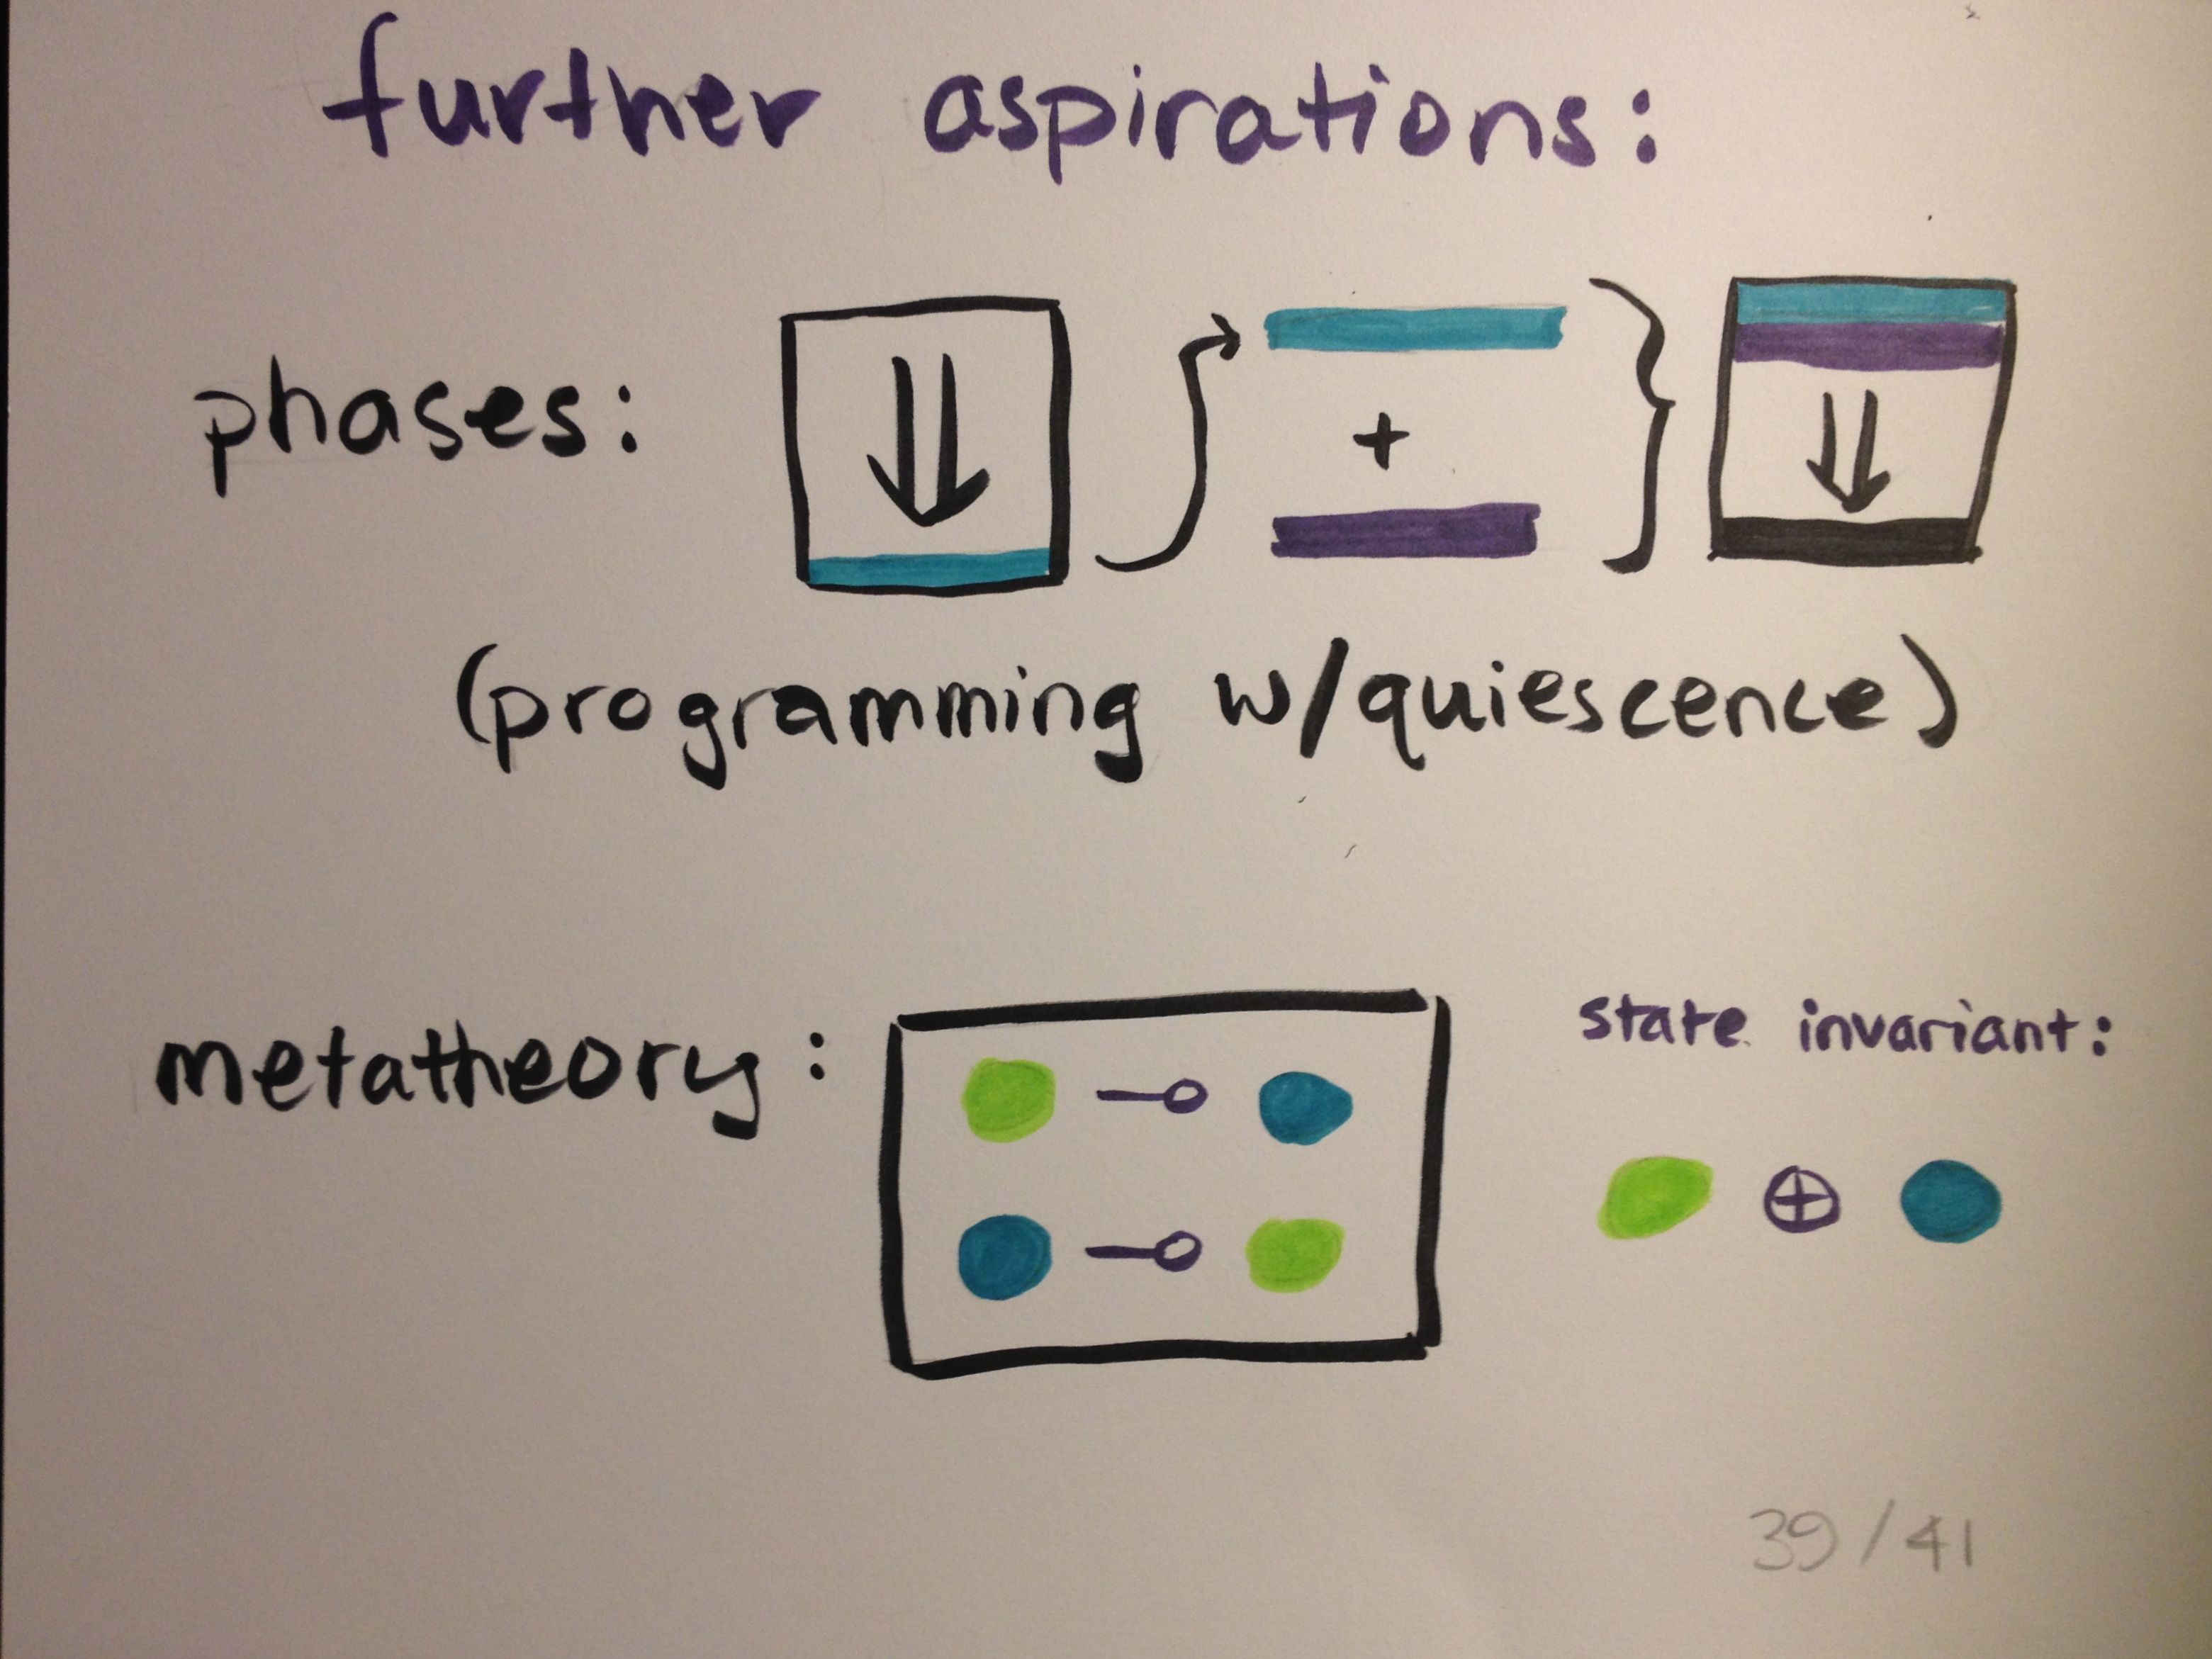 further aspirations:
phases:
+
(programming w/quiescence)
metatheory:
state invariant:
⊕
39/41